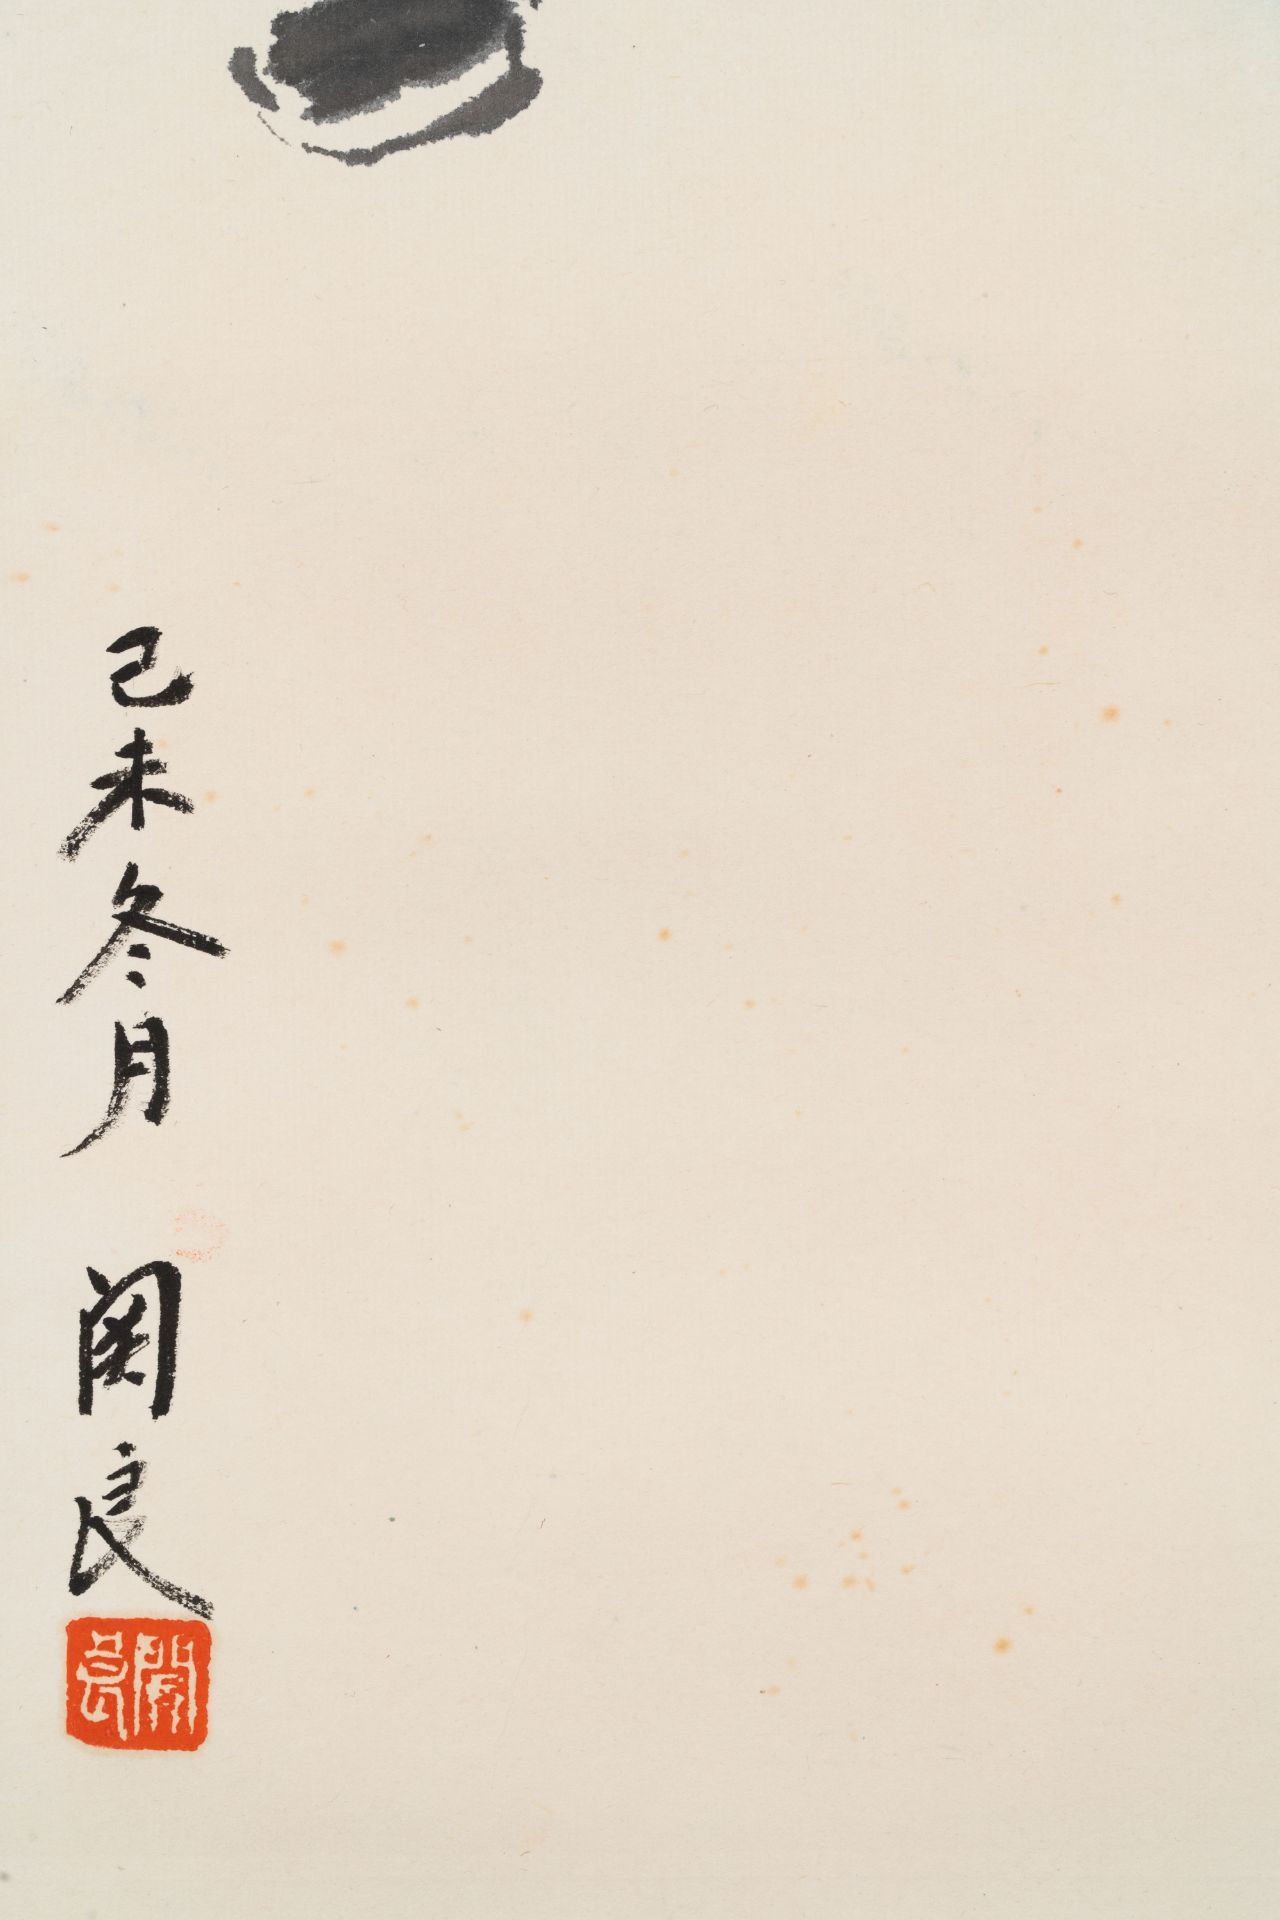 己未冬月 関良
関良